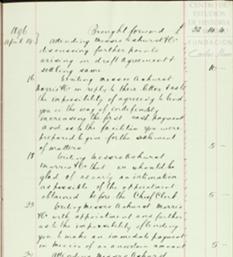 1896 Brought forward £
April 14 Attending Messrs Ashurst & Co
discussing further points
arising on draft Agreement &
settling same 10
16 Writing Messrs Ashurst
Morris & Co in reply to their letter as to
the impossibility of agreeing to bind
you in the way of
increasing the first cash payment
and as to the facilities you were
prepared to give for the settlement
of matters 5
18 Writing Messrs Ashurst
Morris & Co that we should be
glad of as early an intimation
as possible of the appointment
obtained before the Chief Clerk 5
23 Writing Messrs Ashurst Morris
& Co with appointment and further
as to the impossibility of binding
you to make an immediate payment
in excess of an uncertain amount 5
Attending Messrs Ashurst
FUNDACIÓN